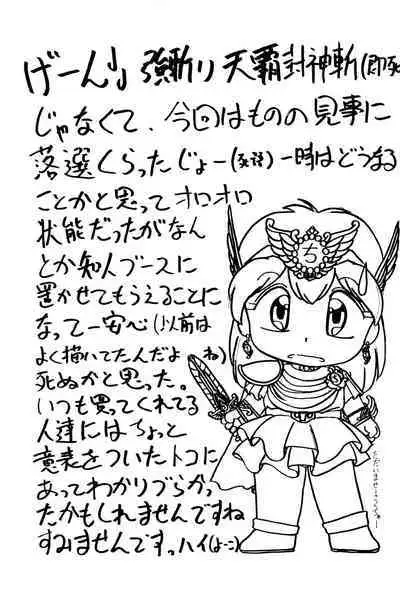 げーん!」 強斬り 天覇封神斬(即死
じゃなくて、今回はものの見事に
落選くらったじょー(死語) 一時はどうなる
ことかと思ってオロオロ
状態だったがなん
とか知人ブースに
置かせてもらえることに
なって一安心(以前は
よく描いてたんだよ ね)
死ぬかと思った。
いつも買ってくれてる
人達にはちょっと
意表をついたトコに
あってわかりづらかっ
たかもしれませんですね
すみませんですっハイ(よーこ)
ち